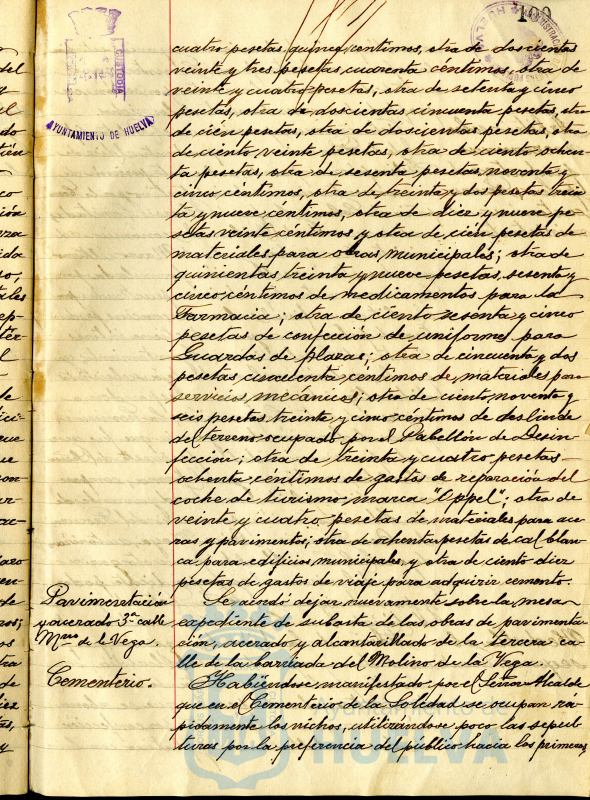 109
HUELVA
CUSTODIA
AYUNTAMIENTO DE HUELVA
cuatro pesetas quince centimos, otra de doscientas
veinte y tres pesetas cuarenta céntimos, otra de
veinte y cuatro pesetas, otra de setenta y cinco
pesetas, otra de doscientas cincuenta pesetas, otra
de cien pesetas, otra de doscientas pesetas, otra
de ciento veinte pesetas, otra de ciento ochen-
ta pesetas, otra de sesenta pesetas noventa y
cinco céntimos, otra de treinta y dos pesetas trein
ta y nueve céntimos, otra de diez y nueve pe-
setas veinte céntimos y otra de cien pesetas de
materiales para obras municipales; otra de
quinientas treinta y nueve pesetas, sesenta y
cinco céntimos de medicamentos para la
Farmacia; otra de ciento sesenta y cinco
pesetas de confección de uniformes para
Guardas de plazas; otra de cincuenta y dos
pesetas cincuenta céntimos de materiales para
servicios mecánicos; otra de ciento noventa y
seis pesetas treinta y cinco céntimos de deslinde
del terreno ocupado por el Pabellón de Desin-
fección; otra de treinta y cuatro pesetas
ochenta céntimos de gastos de reparación del
coche de turismo marca "Oppel"; otra de
veinte y cuatro pesetas de materiales para ace-
ras y pavimentos; otra de ochenta pesetas de cal blan-
ca para edificios municipales y otra de ciento diez
pesetas de gastos de viaje para adquirir cemento.
Pavimentación
y acerado 3ª calle
Mno de la Vega.
Se acordó dejar nuevamente sobre la mesa
expediente de subasta de las obras de pavimenta-
ción, acerado y alcantarillado de la tercera ca-
lle de la barriada del Molino de la Vega.
Cementerio.
Habiéndose manifestado por el Señor Alcalde
que en el Cementerio de la Soledad se ocupan rá-
pidamente los nichos, utilizándose poco las sepul-
turas por la preferencia del público hacia los primeros,
HUELVA